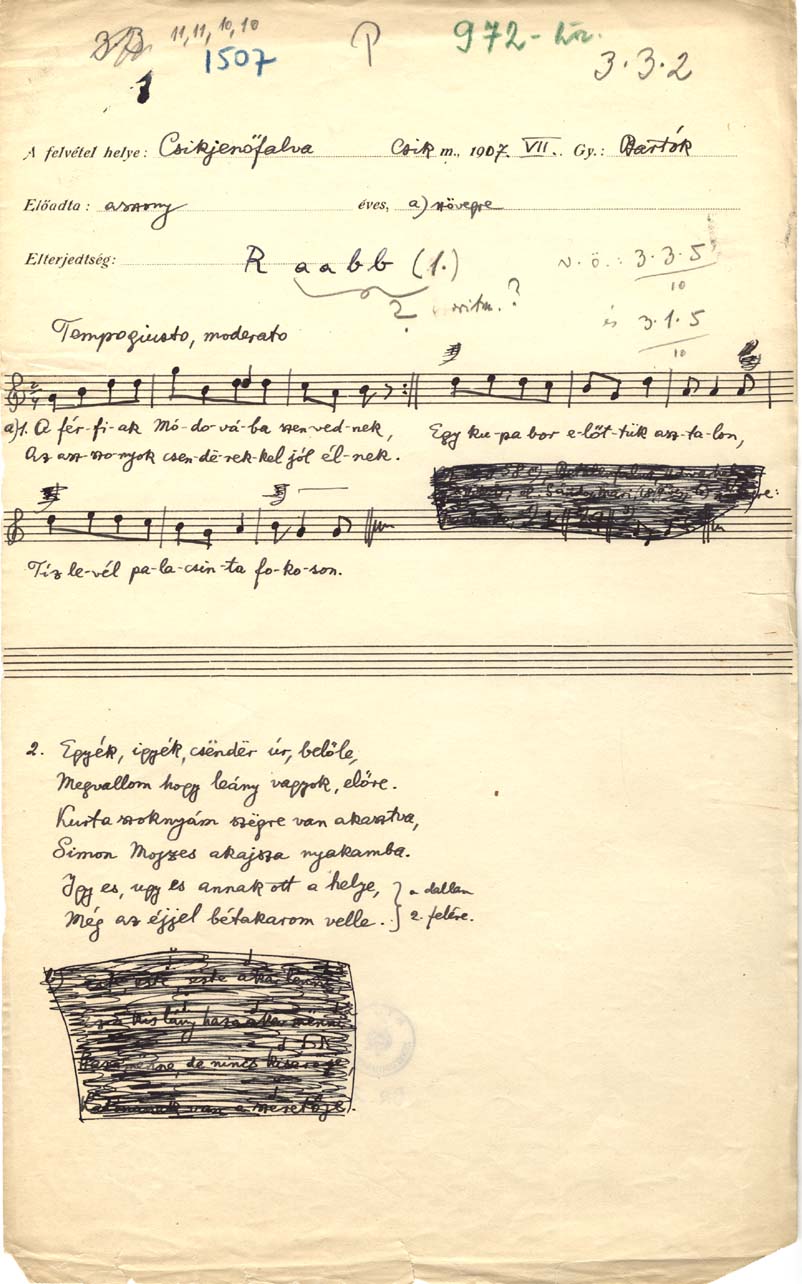 11, 11, 10, 10
P
972-
1507
3.3.2
A felvétel helye: Csikjenőfalva Csik m., 1907. VII. Gy.: Bartók
Előadta: asszony éves, a) szövegre
Elterjedtség: R a a b b (1.)
3.3.5
10
2 ritm. ?
és 3.1.5
10
Tempogiusto, moderato
a) 1. A fér-fi-ak Mó-do-vá-ba szen-ved-nek, Egy ku-pa bor e-lőt-tük asz-ta-lon,
Az asz-szo-nyok csen-dë-rek-kel jól él-nek.
Tíz le-vél pa-la-csin-ta fo-ko-son.
2. Egyék, igyék, csëndër úr, belőle,
Megvallom hogy leány vagyok, előre.
Kurta szoknyám szëgre van akasztva,
Simon Mojzes akajsza nyakamba.
Igy es, ugy es annak ott a helye, } a dallam
Még az éjjel bétakarom velle. } 2. felére.